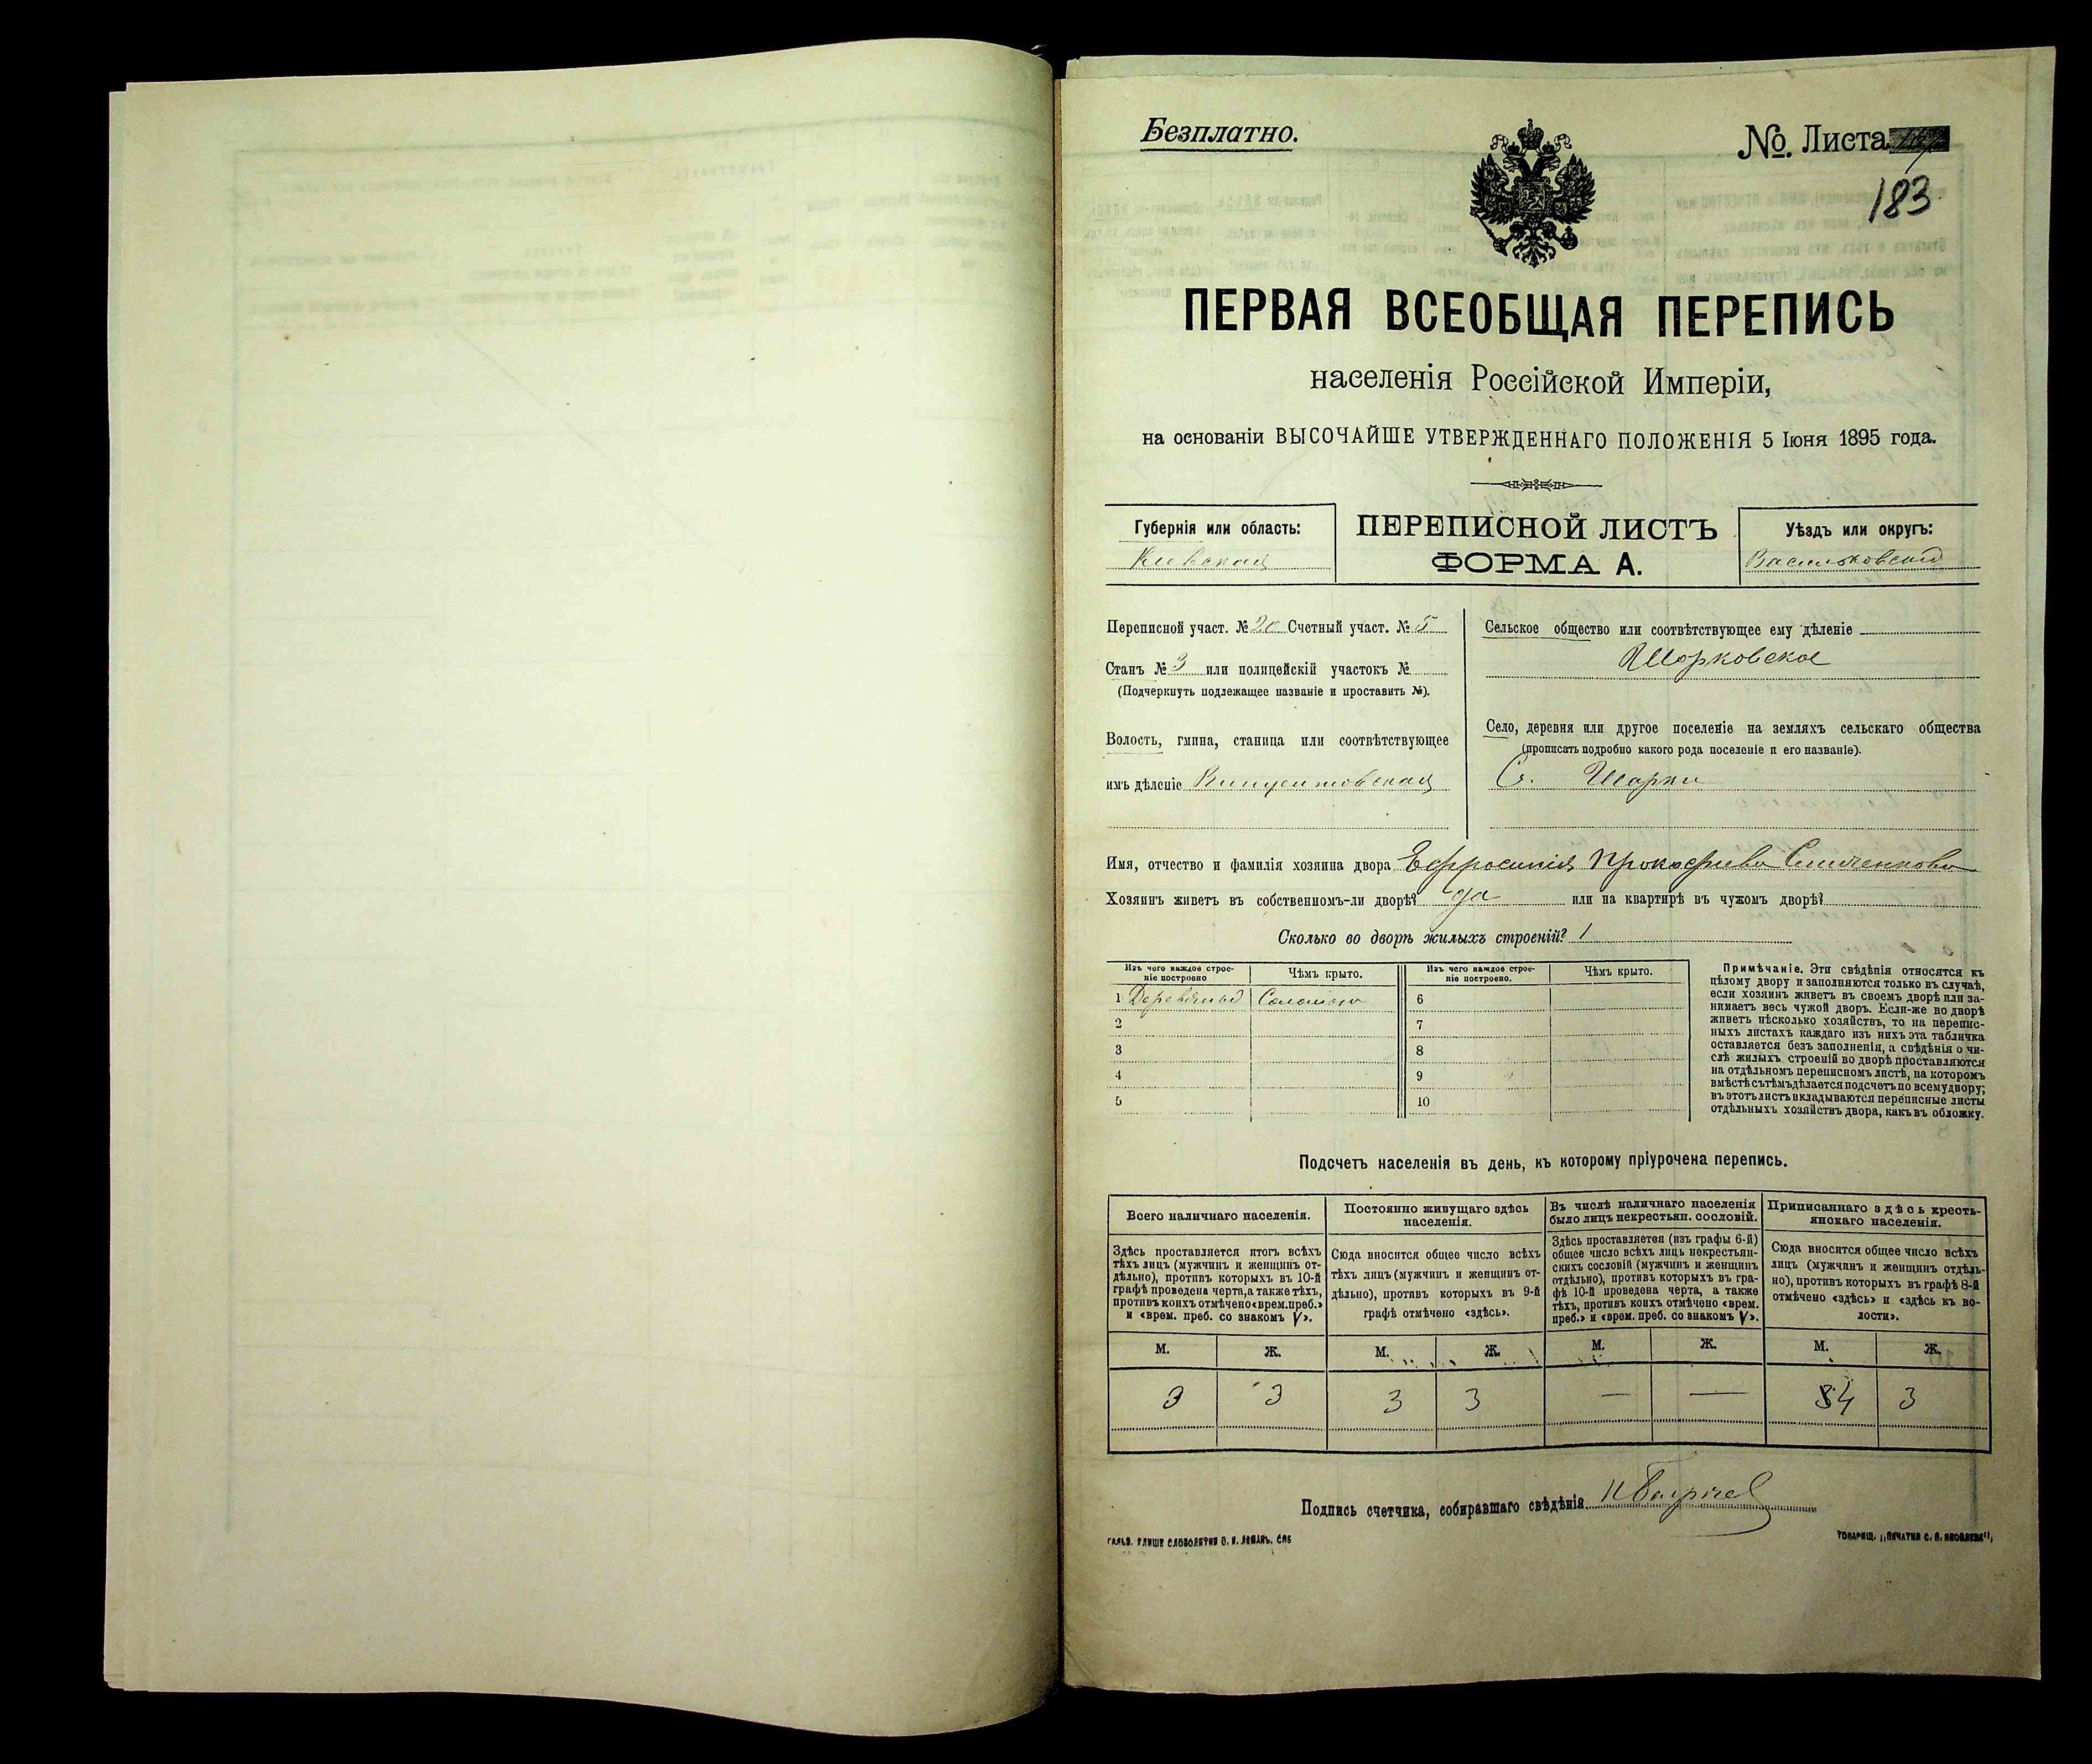 Безплатно.
№. Листа
183
ПЕРВАЯ ВСЕОБЩАЯ ПЕРЕПИСЬ
населенія Россійской Имперіи,
на основаніи ВЫСОЧАЙШЕ УТВЕРЖДЕННАГО ПОЛОЖЕНІЯ 5 Іюня 1895 года.
Губернія или область:
Кіевская
ПЕРЕПИСНОЙ ЛИСТЪ
ФОРМА А.
Уѣздъ или округъ:
Васильковскій
Переписной участ. № 20 Счетный участ. № 5
Станъ № 3 или полицейскій участокъ №
(Подчеркнуть подлежащее названіе и проставить №).
Волость, гмина, станица или соотвѣтствующее
имъ дѣленіе Винцентовская
Сельское общество или соотвѣтствующее ему дѣленіе
Шарковское
Село, деревня или другое поселеніе на земляхъ сельскаго общества
(прописать подробно какого рода поселеніе и его названіе).
С. Шарки
Имя, отчество и фамилія хозяина двора Ефросинія Прокофьева
Хозяинъ живетъ въ собственномъ-ли дворѣ? да или на квартирѣ въ чужомъ дворѣ?
Сколько во дворѣ жилыхъ строеній? 1
Изъ чего каждое строе-
ніе построено
Чѣмъ крыто.
Изъ чего каждое строе-
ніе построено.
Чѣмъ крыто.
1 Деревяный Соломою 6
2 7
3 8
4 9
5 10
Примѣчаніе. Эти свѣдѣнія относятся къ
цѣлому двору и заполняются только въ случаѣ,
если хозяинъ живетъ въ своемъ дворѣ или за-
нимаетъ весь чужой дворъ. Если-же во дворѣ
живетъ нѣсколько хозяйствъ, то на перепис-
ныхъ листахъ каждаго изъ нихъ эта табличка
оставляется безъ заполненія, а свѣдѣнія о чи-
слѣ жилыхъ строеній во дворѣ проставляются
на отдѣльномъ переписномъ листѣ, на которомъ
вмѣстѣ съ тѣмъ дѣлается подсчетъ по всему двору;
въ этотъ листъ вкладываются переписные листы
отдѣльныхъ хозяйствъ двора, какъ въ обложку.
Подсчетъ населенія въ день, къ которому пріурочена перепись.
Всего наличнаго населенія.
Здѣсь проставляется итогъ всѣхъ
тѣхъ лицъ (мужчинъ и женщинъ от-
дѣльно), противъ которыхъ въ 10-й
графѣ проведена черта, а также тѣхъ,
противъ коихъ отмѣчено «врем. преб.»
и «врем. преб. со знакомъ V».
Постоянно живущаго здѣсь
населенія.
Сюда вносится общее число всѣхъ
тѣхъ лицъ (мужчинъ и женщинъ от-
дѣльно), противъ которыхъ въ 9-й
графѣ отмѣчено «здѣсь».
Въ числѣ наличнаго населенія
было лицъ некрестьян. сословій.
Здѣсь проставляется (изъ графы 6-й)
общее число всѣхъ лицъ некрестьян-
скихъ сословій (мужчинъ и женщинъ
отдѣльно), противъ которыхъ въ гра-
фѣ 10-й проведена черта, а также
тѣхъ, противъ коихъ отмѣчено «врем.
преб.» и «врем. преб. со знакомъ V».
Приписаннаго здѣсь кресть-
янскаго населенія.
Сюда вносится общее число всѣхъ
лицъ (мужчинъ и женщинъ отдѣль-
но), противъ которыхъ въ графѣ 8-й
отмѣчено «здѣсь» и «здѣсь къ во-
лости».
М. Ж. М. Ж. М. Ж. М. Ж.
3 3 3 3 — — 4 3
Подпись счетчика, собиравшаго свѣдѣнія
ГАЛЬВ. КЛИШЕ СЛОВОЛИТНИ О. И. ЛЕМАНЪ. СПБ
ТОВАРИЩ. „ПЕЧАТНЯ С. П. ЯКОВЛЕВА",